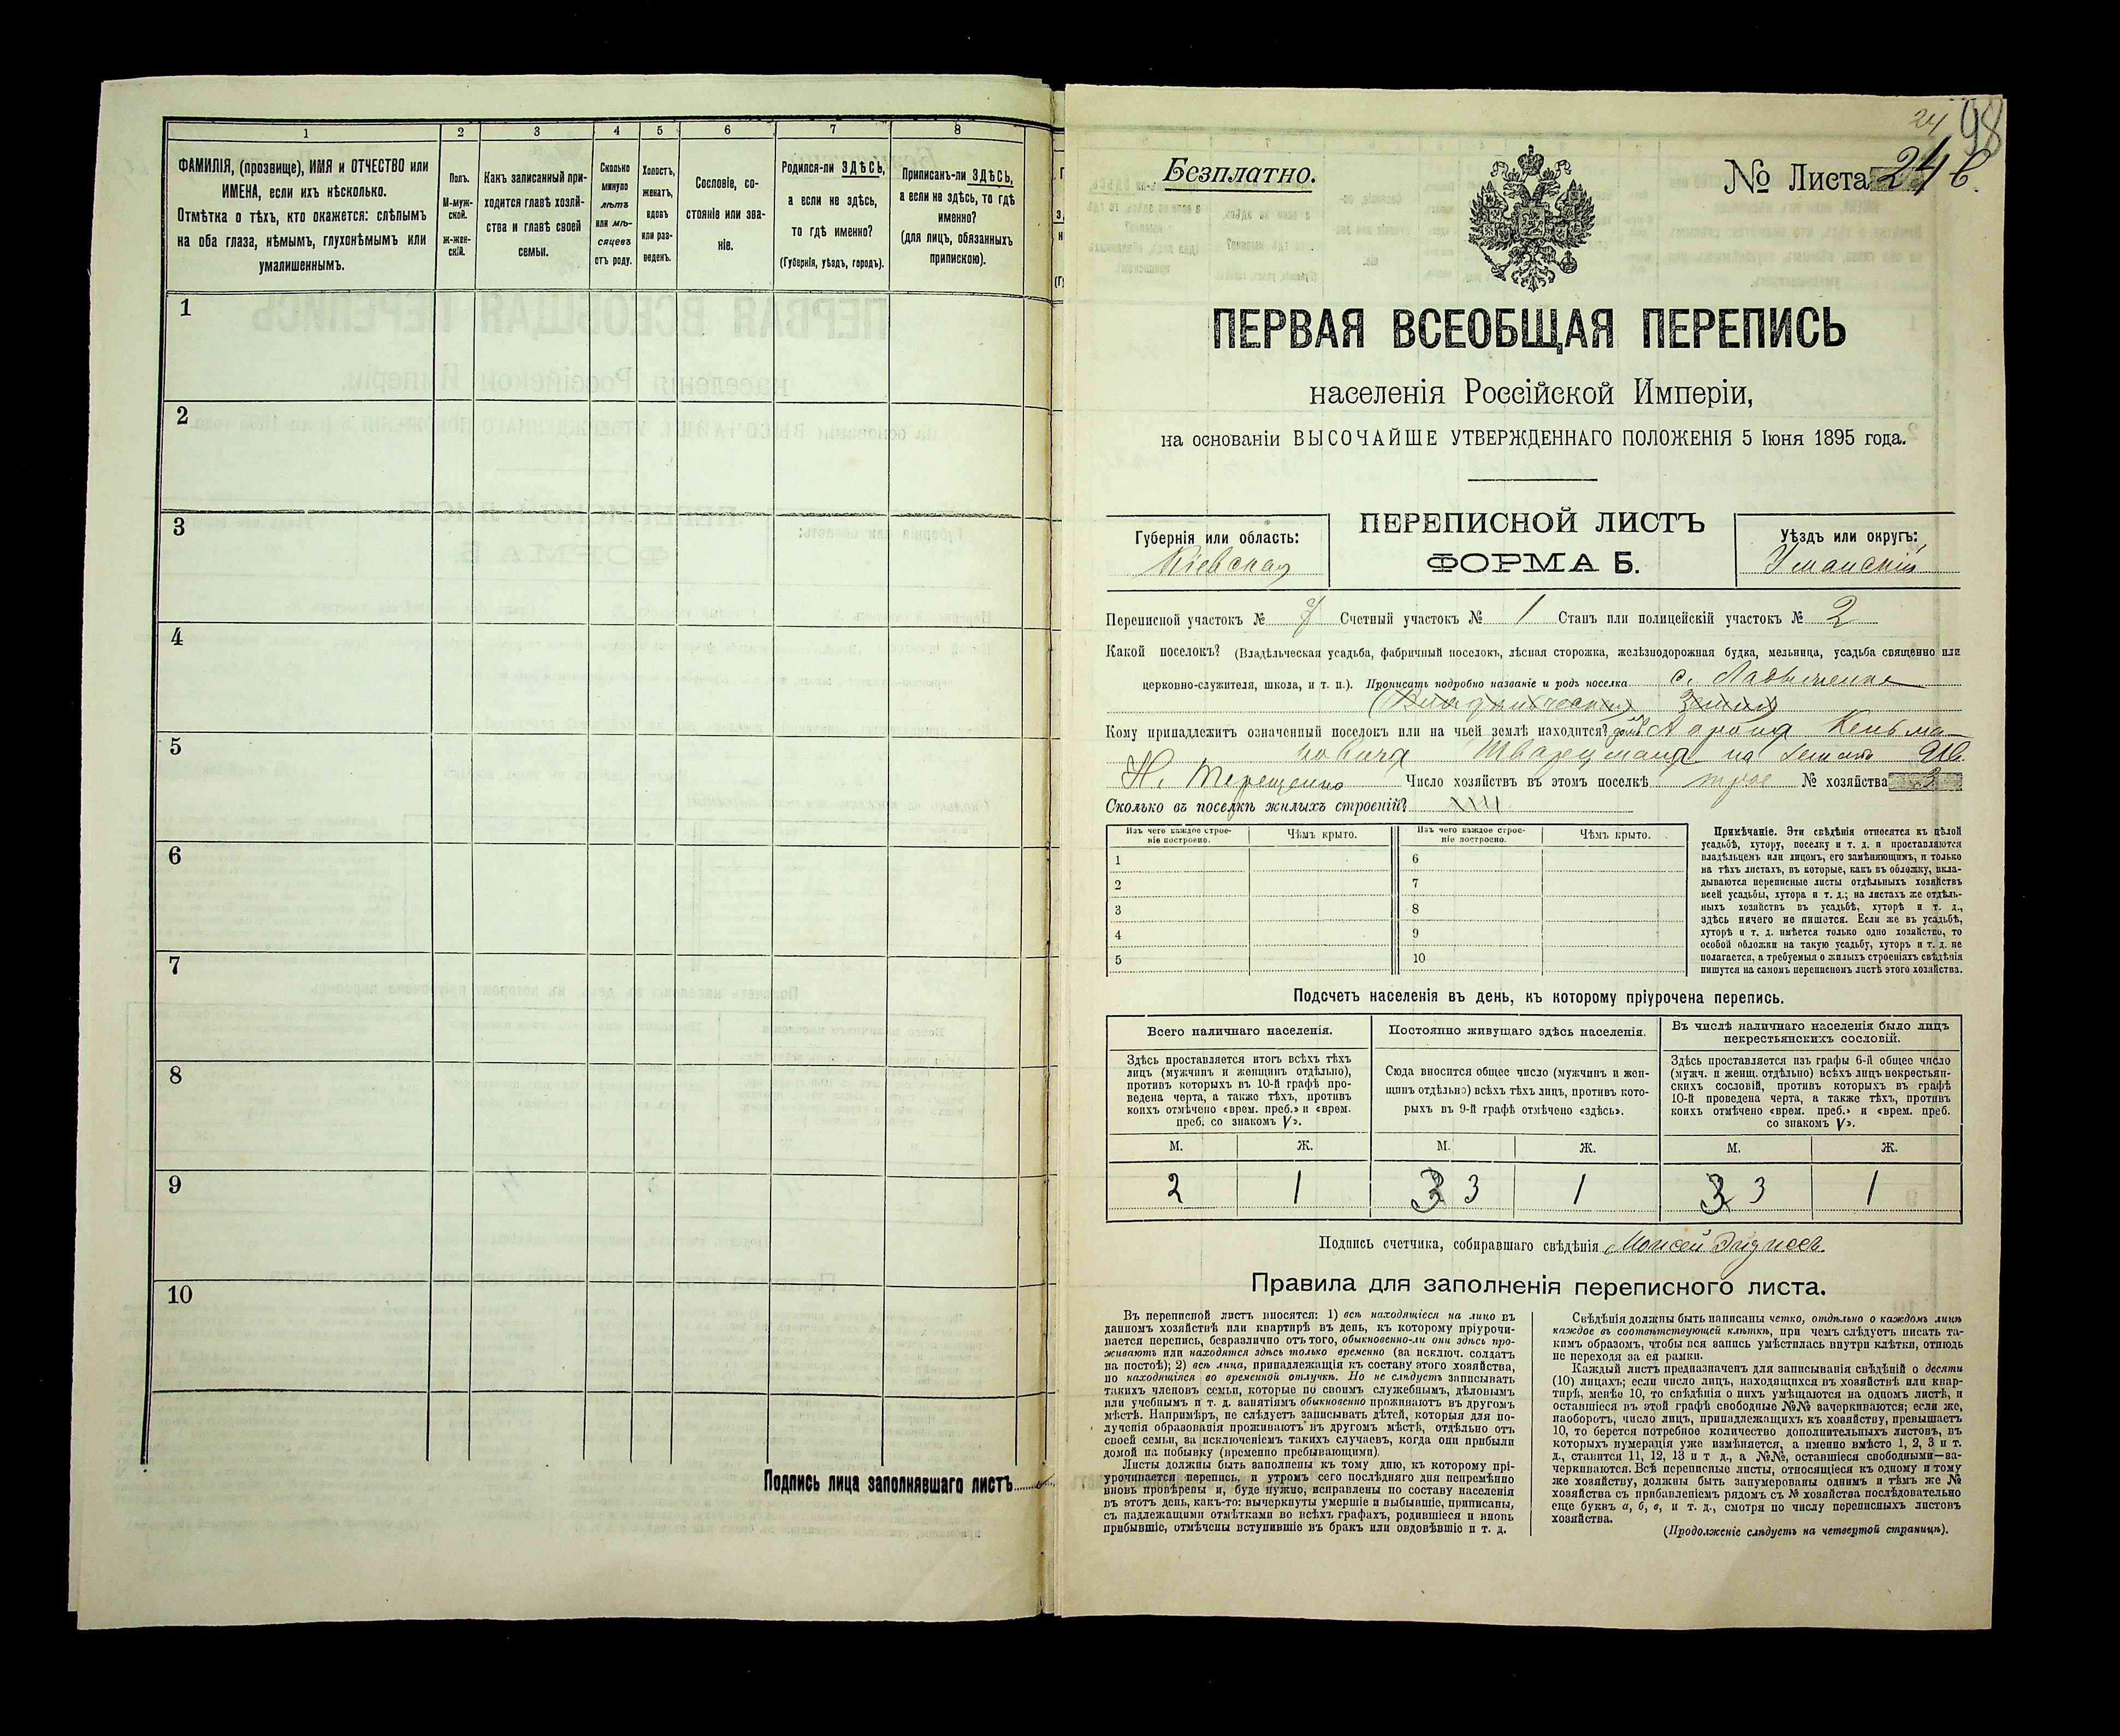 1
2
3
4
5
6
7
8
ФАМИЛІЯ, (прозвище), ИМЯ и ОТЧЕСТВО или
ИМЕНА, если ихъ нѣсколько.
Отмѣтка о тѣхъ, кто окажется: слѣпымъ
на оба глаза, нѣмымъ, глухонѣмымъ или
умалишеннымъ.
Полъ.
М-муж-
ской.
ж-жен-
скій.
Какъ записанный при-
ходится главѣ хозяй-
ства и главѣ своей
семьи.
Сколько
минуло
лѣтъ
или мѣ-
сяцевъ
отъ роду.
Холостъ,
женатъ,
вдовъ
или раз-
веденъ.
Сословіе, со-
стояніе или зва-
ніе.
Родился-ли ЗДѢСЬ,
а если не здѣсь,
то гдѣ именно?
(Губернія, уѣздъ, городъ).
Приписанъ-ли ЗДѢСЬ,
а если не здѣсь, то гдѣ
именно?
(для лицъ, обязанныхъ
припискою).
1
2
3
4
5
6
7
8
9
10
Подпись лица заполнявшаго листъ
24
98
Безплатно.
№ Листа 24 в.
ПЕРВАЯ ВСЕОБЩАЯ ПЕРЕПИСЬ
населенія Россійской Имперіи,
на основаніи ВЫСОЧАЙШЕ УТВЕРЖДЕННАГО ПОЛОЖЕНІЯ 5 Іюня 1895 года.
ПЕРЕПИСНОЙ ЛИСТЪ
ФОРМА Б.
Губернія или область:
Кіевская
Уѣздъ или округъ:
Уманскій
Переписной участокъ № 7 Счетный участокъ № 1 Станъ или полицейскій участокъ № 2
Какой поселокъ? (Владѣльческая усадьба, фабричный поселокъ, лѣсная сторожка, желѣзнодорожная будка, мельница, усадьба священно или
церковно-служителя, школа, и т. п.). Прописать подробно названіе и родъ поселка с.
Кому принадлежитъ означенный поселокъ или на чьей землѣ находится? домъ Арона Кельма-
новича Шварцмана на земли
Н. Терещенко Число хозяйствъ въ этомъ поселкѣ трое № хозяйства 3
Сколько въ поселкѣ жилыхъ строеній?
Изъ чего каждое строе-
ніе построено.
Чѣмъ крыто.
Изъ чего каждое строе-
ніе построено.
Чѣмъ крыто.
1
2
3
4
5
6
7
8
9
10
Примѣчаніе. Эти свѣдѣнія относятся къ цѣлой
усадьбѣ, хутору, поселку и т. д. и проставляются
владѣльцемъ или лицомъ, его замѣняющимъ, и только
на тѣхъ листахъ, въ которые, какъ въ обложку, вкла-
дываются переписные листы отдѣльныхъ хозяйствъ
всей усадьбы, хутора и т. д.; на листахъ же отдѣль-
ныхъ хозяйствъ въ усадьбѣ, хуторѣ и т. д.,
здѣсь ничего не пишется. Если же въ усадьбѣ,
хуторѣ и т. д. имѣется только одно хозяйство, то
особой обложки на такую усадьбу, хуторъ и т. д. не
полагается, а требуемыя о жилыхъ строеніяхъ свѣдѣнія
пишутся на самомъ переписномъ листѣ этого хозяйства.
Подсчетъ населенія въ день, къ которому пріурочена перепись.
Всего наличнаго населенія.
Здѣсь проставляется итогъ всѣхъ тѣхъ
лицъ (мужчинъ и женщинъ отдѣльно),
противъ которыхъ въ 10-й графѣ про-
ведена черта, а также тѣхъ, противъ
коихъ отмѣчено «врем. преб.» и «врем.
преб. со знакомъ V».
Постоянно живущаго здѣсь населенія.
Сюда вносится общее число (мужчинъ и жен-
щинъ отдѣльно) всѣхъ тѣхъ лицъ, противъ кото-
рыхъ въ 9-й графѣ отмѣчено «здѣсь».
Въ числѣ наличнаго населенія было лицъ
некрестьянскихъ сословій.
Здѣсь проставляется изъ графы 6-й общее число
(мужч. и женщ. отдѣльно) всѣхъ лицъ некрестьян-
скихъ сословій, противъ которыхъ въ графѣ
10-й проведена черта, а также тѣхъ, противъ
коихъ отмѣчено «врем. преб.» и «врем. преб.
со знакомъ V».
М. Ж. М. Ж. М. Ж.
2 1 3 3 1 3 3 1
Подпись счетчика, собиравшаго свѣдѣнія Моисей
Правила для заполненія переписного листа.
Въ переписной листъ вносятся: 1) всѣ находящіеся на лицо въ
данномъ хозяйствѣ или квартирѣ въ день, къ которому пріурочи-
вается перепись, безразлично отъ того, обыкновенно-ли они здѣсь про-
живаютъ или находятся здѣсь только временно (за исключ. солдатъ
на постоѣ); 2) всѣ лица, принадлежащія къ составу этого хозяйства,
но находящіяся во временной отлучкѣ. Но не слѣдуетъ записывать
такихъ членовъ семьи, которые по своимъ служебнымъ, дѣловымъ
или учебнымъ и т. д. занятіямъ обыкновенно проживаютъ въ другомъ
мѣстѣ. Напримѣръ, не слѣдуетъ записывать дѣтей, которыя для по-
лученія образованія проживаютъ въ другомъ мѣстѣ, отдѣльно отъ
своей семьи, за исключеніемъ такихъ случаевъ, когда они прибыли
домой на побывку (временно пребывающими).
Листы должны быть заполнены къ тому дню, къ которому прі-
урочивается перепись, и утромъ сего послѣдняго дня непремѣнно
вновь провѣрены и, буде нужно, исправлены по составу населенія
въ этотъ день, какъ-то: вычеркнуты умершіе и выбывшіе, приписаны,
съ надлежащими отмѣтками во всѣхъ графахъ, родившіеся и вновь
прибывшіе, отмѣчены вступившіе въ бракъ или овдовѣвшіе и т. д.
Свѣдѣнія должны быть написаны четко, отдѣльно о каждомъ лицѣ
каждое въ соотвѣтствующей клѣткѣ, при чемъ слѣдуетъ писать та-
кимъ образомъ, чтобы вся запись умѣстилась внутри клѣтки, отнюдь
не переходя за ея рамки.
Каждый листъ предназначенъ для записыванія свѣдѣній о десяти
(10) лицахъ; если число лицъ, находящихся въ хозяйствѣ или квар-
тирѣ, менѣе 10, то свѣдѣнія о нихъ умѣщаются на одномъ листѣ, и
оставшіеся въ этой графѣ свободные №№ зачеркиваются; если же,
наоборотъ, число лицъ, принадлежащихъ къ хозяйству, превышаетъ
10, то берется потребное количество дополнительныхъ листовъ, въ
которыхъ нумерація уже измѣняется, а именно вмѣсто 1, 2, 3 и т.
д., ставится 11, 12, 13 и т д., а №№, оставшіеся свободными—за-
черкиваются. Всѣ переписные листы, относящіеся къ одному и тому
же хозяйству, должны быть занумерованы однимъ и тѣмъ же №
хозяйства съ прибавленіемъ рядомъ съ № хозяйства послѣдовательно
еще буквъ а, б, в, и т. д., смотря по числу переписныхъ листовъ
хозяйства.
(Продолженіе слѣдуетъ на четвертой страницѣ).